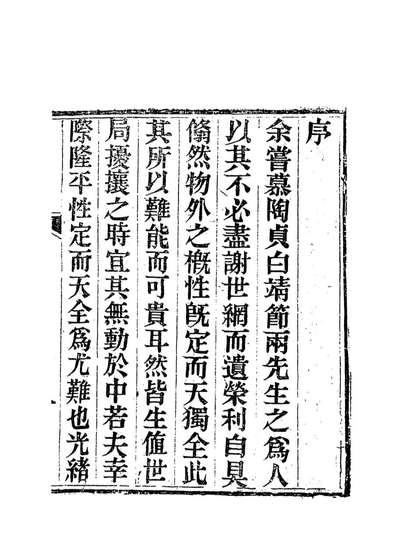 序
余嘗慕陶貞白靖節兩先生之爲人
以其不必盡謝世網而遺榮利自具
翛然物外之槪性旣定而天獨全此
其所以難能而可貴耳然皆生值世
局擾攘之時宜其無動於中若夫幸
際隆平性定而天全爲尤難也光緖